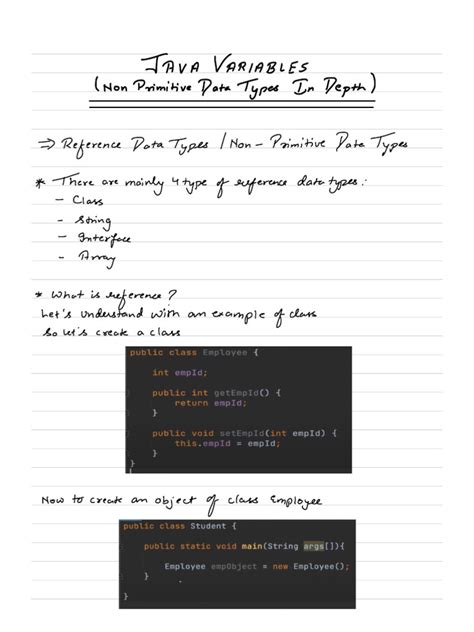 JAVA VARIABLES
(Non Primitive Data Types In Depth)
⇒ Reference Data Types / Non-Primitive Data Types
* There are mainly 4 type of reference data types:
- Class
- String
- Interface
- Array
* What is reference?
Let's understand with an example of class
So let's create a class
public class Employee {
int empId;
public int getEmpId() {
return empId;
}
public void setEmpId(int empId) {
this.empId = empId;
}
}
Now to create an object of class Employee
public class Student {
public static void main(String args[]){
Employee empObject = new Employee();
}